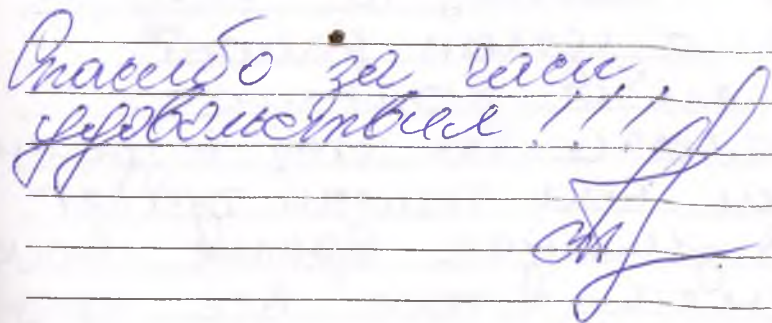 Спасибо за часы
удовольствия!!!